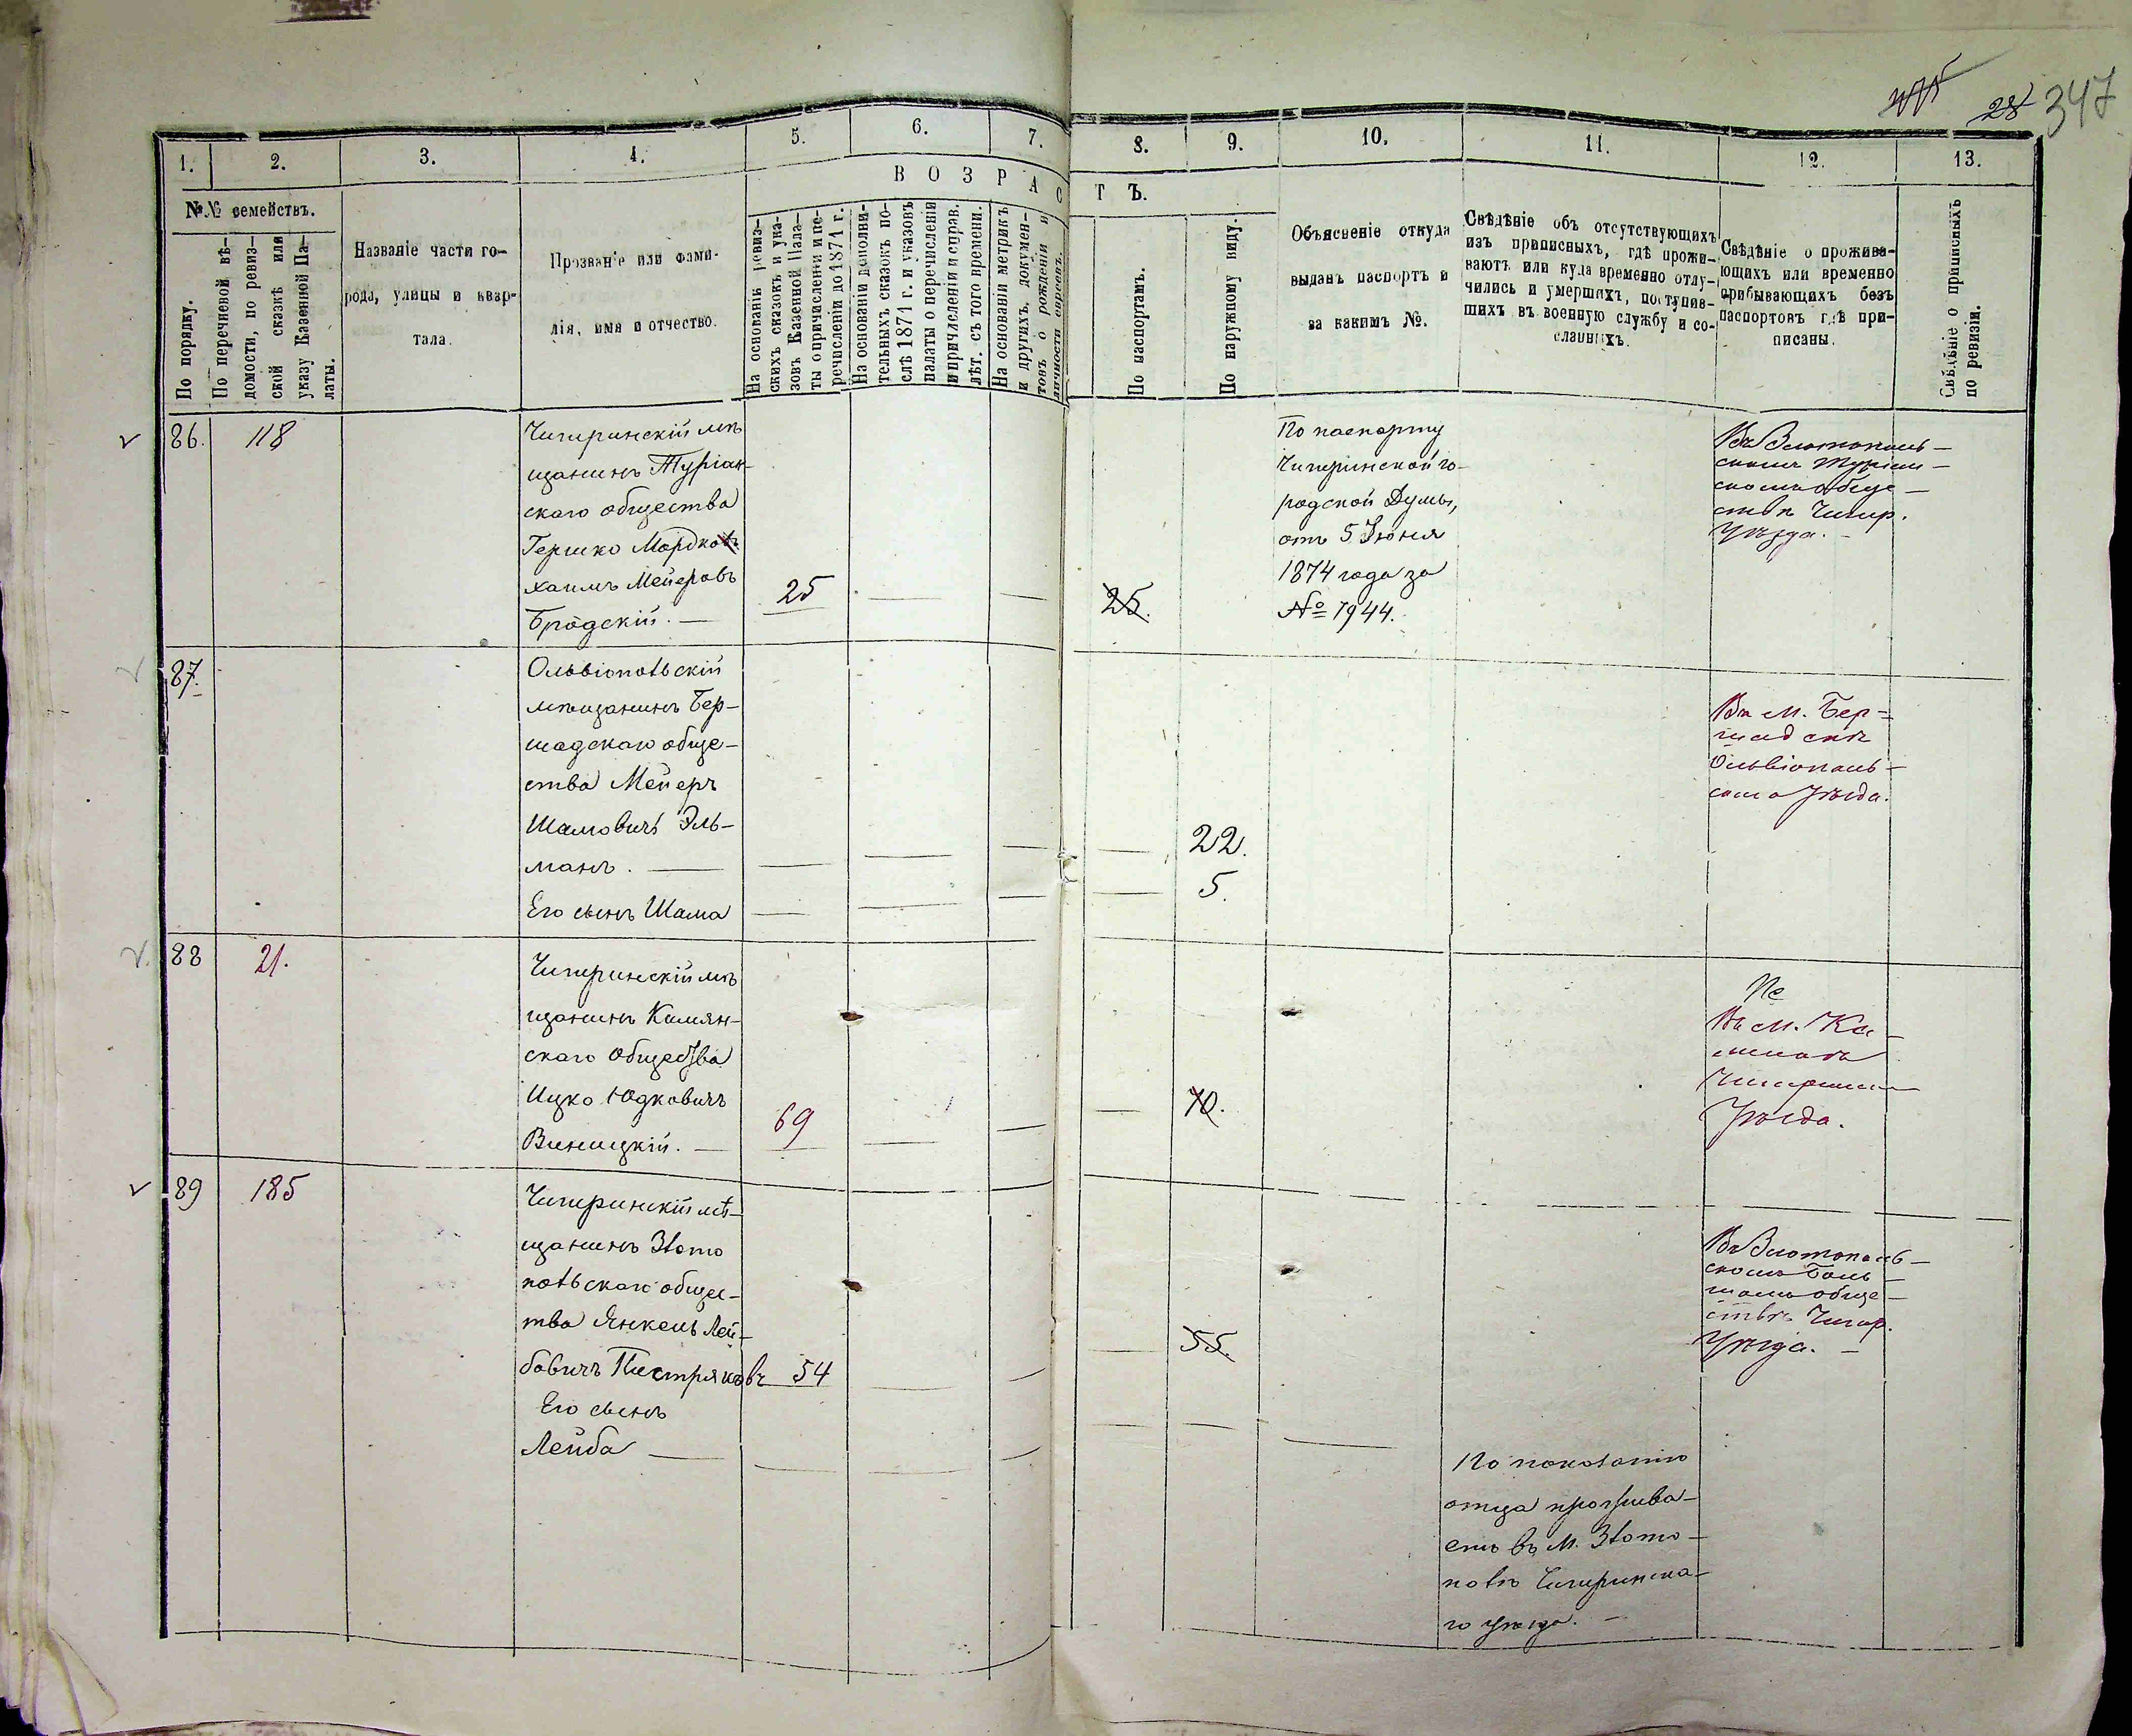 28 347
1. 2. 3. 4. 5. 6. 7. 8. 9. 10. 11. 12. 13.
ВОЗРАСТЪ.
№№ семействъ.
По порядку.
По перечневой вѣ-
домости, по ревиз-
ской сказкѣ или
указу Казенной Па-
латы.
Названіе части го-
рода, улицы и квар-
тала.
Прозваніе или фами-
лія, имя и отчество.
На основаніи ревиз-
скихъ сказокъ и ука-
зовъ Казенной Пала-
ты о причисленіи и пе-
речисленіи до 1871 г.
На основаніи дополни-
тельныхъ сказокъ по-
слѣ 1871 г. и указовъ
палаты о перечисленіи
и причисленіи и справ.
лѣт. съ того времени.
На основаніи метрикъ
и другихъ докумен-
товъ о рожденіи и
личности евреевъ.
По паспортамъ.
По наружному виду.
Объясненіе откуда
выданъ паспортъ и
за какимъ №.
Свѣдѣніе объ отсутствующихъ
изъ приписныхъ, гдѣ прожи-
ваютъ или куда временно отлу-
чились и умершихъ, поступив-
шихъ въ военную службу и со-
сланныхъ.
Свѣдѣніе о прожива-
ющихъ или временно
прибывающихъ безъ
паспортовъ гдѣ при-
писаны.
Свѣдѣніе о приписныхъ
по ревизіи.
86. 118
Чигиринскій мѣ
щанинъ Туріан-
скаго общества
Гершко Мордковъ
хаимъ Мейеровъ
Бродскій. —
25
25.
По паспорту
Чигиринской го-
родской Думы,
отъ 5 Іюня
1874 года за
№ 1944.
Въ Златополь-
скомъ Туріан-
скомъ обще-
ствѣ Чигир.
Уѣзда. -
87.
Ольвіопольскій
мѣщанинъ Бер-
шадскаго обще-
ства Мейеръ
Шамовичъ Эль-
манъ. —
22.
Его сынъ Шама
5.
Въ м. Бер-
шадскѣ
Ольвіополь-
скаго Уѣзда.
88 21.
Чигиринскій мѣ
щанинъ Камян-
скаго общества
Ицко Юдковичъ
Виницкій. —
69
70.
Въ м. Ка-
менкѣ
Чигиринск
Уѣзда.
89 185
Чигиринскій мѣ-
щанинъ Злато
польскаго общес-
тва Янкель Лей-
бовичъ Пистряковъ 54
55.
Его сынъ
Лейба —
Въ Златополь-
скомъ Боль-
шомъ обще-
ствѣ Чигир.
Уѣзда. -
По показанію
отца прожива-
етъ въ м. Злато-
полѣ Чигиринска-
го уѣзда. -